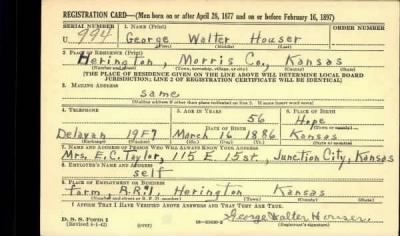 REGISTRATION CARD—(Men born on or after April 28, 1877 and on or before February 16, 1897)
SERIAL NUMBER 1. NAME (Print)
U 994 George Walter Houser
(First) (Middle) (Last)
2. PLACE OF RESIDENCE (Print)
Herington, Morris Co., Kansas
(Number and street) (Town, township, village, or city) (County) (State)
[THE PLACE OF RESIDENCE GIVEN ON THE LINE ABOVE WILL DETERMINE LOCAL BOARD
JURISDICTION; LINE 2 OF REGISTRATION CERTIFICATE WILL BE IDENTICAL]
3. MAILING ADDRESS
same
[Mailing address if other than place indicated on line 2. If same insert word same]
4. TELEPHONE 5. AGE IN YEARS 6. PLACE OF BIRTH
56 Hope
DATE OF BIRTH (Town or county)
Delavan 19F7 March 16 1886 Kansas
(Exchange) (Number) (Mo.) (Day) (Yr.) (State or country)
7. NAME AND ADDRESS OF PERSON WHO WILL ALWAYS KNOW YOUR ADDRESS
Mrs. E.C. Taylor, 115 E. 15st., Junction City, Kansas
8. EMPLOYER'S NAME AND ADDRESS
self
9. PLACE OF EMPLOYMENT OR BUSINESS
farm, A.R.1, Herington Kansas
(Number and street or R. F. D. number) (Town) (County) (State)
I AFFIRM THAT I HAVE VERIFIED ABOVE ANSWERS AND THAT THEY ARE TRUE.
D. S. S. FORM 1
(Revised 4-1-42) (over)
George Walter Houser
(Registrant's signature)